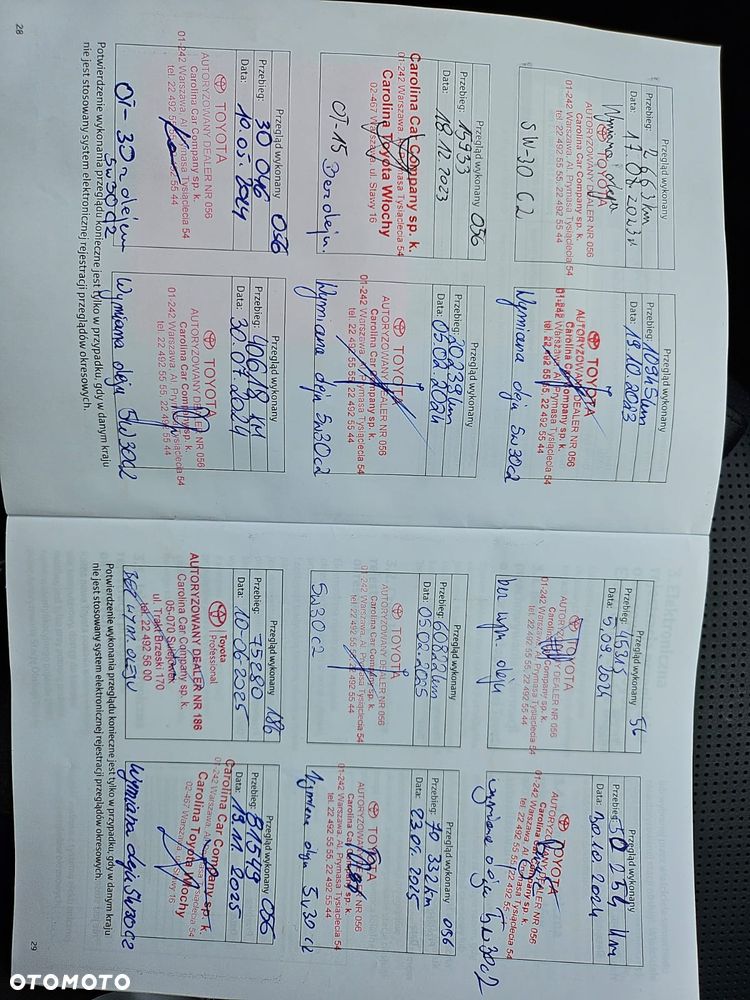 28
Przegląd wykonany
Przebieg: 2 663 km
Data: 17.08.2023r
Wymiana oleju
TOYOTA
AUTORYZOWANY DEALER NR 056
Carolina Car Company sp. k.
01-242 Warszawa, Al. Prymasa Tysiąclecia 54
tel. 22 492 55 55, 22 492 55 44
5W-30 C2
Przegląd wykonany
Przebieg: 10345 km
Data: 19.10.2023
TOYOTA
AUTORYZOWANY DEALER NR 056
Carolina Car Company sp. k.
01-242 Warszawa, Al. Prymasa Tysiąclecia 54
tel. 22 492 55 55, 22 492 55 44
Wymiana oleju 5W30C2
Przegląd wykonany 056
Przebieg: 15933
Data: 18.12.2023
Carolina Car Company sp. k.
01-242 Warszawa, Al. Prymasa Tysiąclecia 54
Carolina Toyota Włochy
02-467 Warszawa, ul. Sławy 16
OT-15 Bez oleju.
Przegląd wykonany
Przebieg: 20239 km
Data: 05.02.2024
TOYOTA
AUTORYZOWANY DEALER NR 056
Carolina Car Company sp. k.
01-242 Warszawa, Al. Prymasa Tysiąclecia 54
tel. 22 492 55 55, 22 492 55 44
Wymiana oleju 5W30C2
Przegląd wykonany 056
Przebieg: 30 046
Data: 10.05.2024
TOYOTA
AUTORYZOWANY DEALER NR 056
Carolina Car Company sp. k.
01-242 Warszawa, Al. Prymasa Tysiąclecia 54
tel. 22 492 55 55, 22 492 55 44
OT-30 z olejem
5W30C2
Przegląd wykonany
Przebieg: 40619 km
Data: 30.07.2024
TOYOTA
AUTORYZOWANY DEALER NR 056
Carolina Car Company sp. k.
01-242 Warszawa, Al. Prymasa Tysiąclecia 54
tel. 22 492 55 55, 22 492 55 44
Wymiana oleju 5W30C2
Potwierdzenie wykonania przeglądu konieczne jest tylko w przypadku, gdy w danym kraju
nie jest stosowany system elektronicznej rejestracji przeglądów okresowych.
Przegląd wykonany 56
Przebieg: 45315
Data: 5.09.2024
TOYOTA
AUTORYZOWANY DEALER NR 056
Carolina Car Company sp. k.
01-242 Warszawa, Al. Prymasa Tysiąclecia 54
tel. 22 492 55 55, 22 492 55 44
bez wym. oleju
Przegląd wykonany
Przebieg: 50 254 km
Data: 30.10.2024
TOYOTA
AUTORYZOWANY DEALER NR 056
Carolina Car Company sp. k.
01-242 Warszawa, Al. Prymasa Tysiąclecia 54
tel. 22 492 55 55, 22 492 55 44
wymiana oleju 5W30C2
Przegląd wykonany
Przebieg: 60820 km
Data: 05.02.2025
TOYOTA
AUTORYZOWANY DEALER NR 056
Carolina Car Company sp. k.
01-242 Warszawa, Al. Prymasa Tysiąclecia 54
tel. 22 492 55 55, 22 492 55 44
5W30C2
Przegląd wykonany 056
Przebieg: 70 337 km
Data: 23.05.2025
TOYOTA
AUTORYZOWANY DEALER NR 056
Carolina Car Company sp. k.
01-242 Warszawa, Al. Prymasa Tysiąclecia 54
tel. 22 492 55 55, 22 492 55 44
Wymiana oleju 5W30 C2
Przegląd wykonany 186
Przebieg: 75280
Data: 10-06-2025
Toyota
Professional
AUTORYZOWANY DEALER NR 186
Carolina Car Company sp. k.
05-070 Sulejówek
ul. Trakt Brzeski 170
tel. 22 492 56 00
BEZ WYM. OLEJU
Przegląd wykonany 056
Przebieg: 81549
Data: 13.11.2025
Carolina Car Company sp. k.
01-242 Warszawa, Al. Prymasa Tysiąclecia 54
Carolina Toyota Włochy
02-467 Warszawa, ul. Sławy 16
Wymiana oleju 5W30C2
Potwierdzenie wykonania przeglądu konieczne jest tylko w przypadku, gdy w danym kraju
nie jest stosowany system elektronicznej rejestracji przeglądów okresowych.
29
OTOMOTO